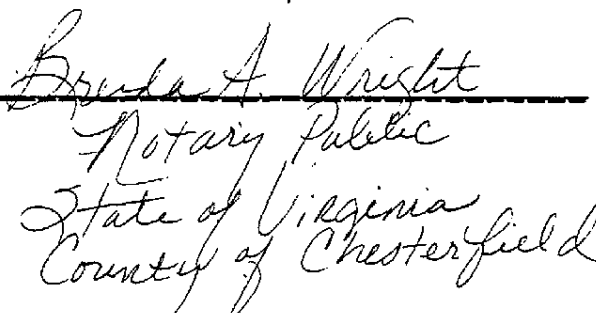 Brenda A. Wright
Notary Public
State of Virginia
County of Chesterfield